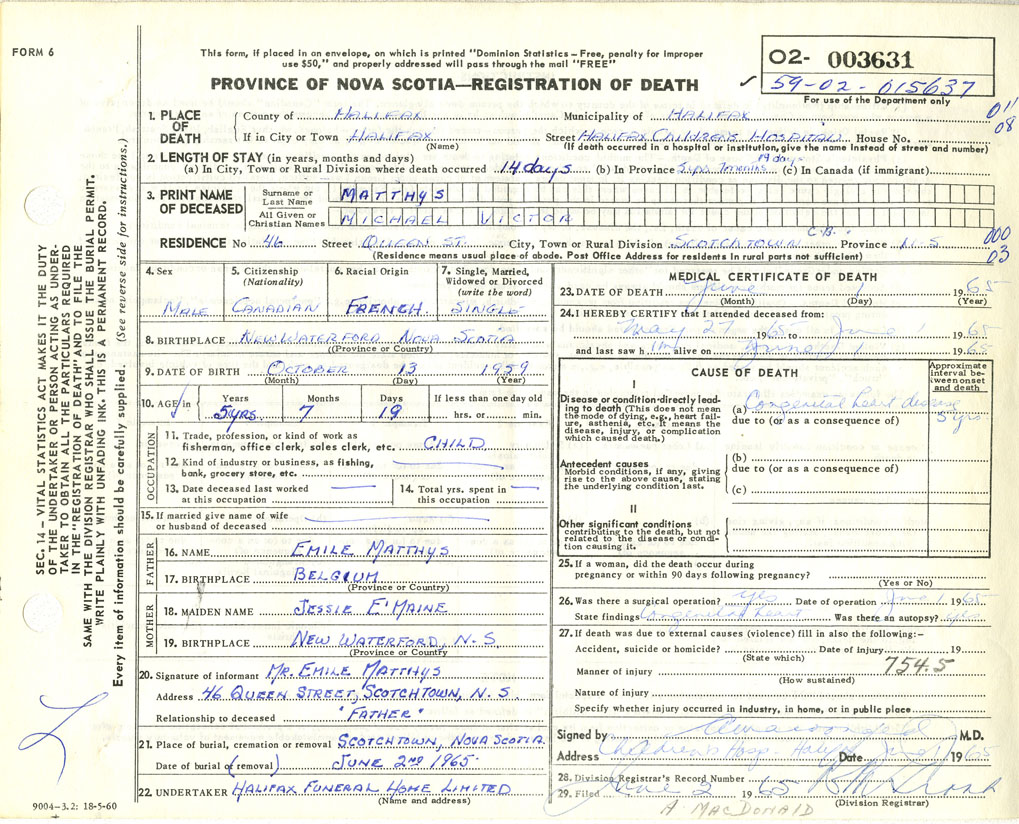 FORM 6
This form, if placed in an envelope, on which is printed "Dominion Statistics – Free, penalty for improper
use $50," and properly addressed will pass through the mail "FREE"
PROVINCE OF NOVA SCOTIA—REGISTRATION OF DEATH
02- 003631
59-02-015637
For use of the Department only
011
08
1. PLACE OF DEATH
County of HALIFAX Municipality of HALIFAX
If in City or Town HALIFAX Street HALIFAX CHILDREN'S HOSPITAL House No.
(Name) (If death occurred in a hospital or institution, give the name instead of street and number)
2. LENGTH OF STAY (in years, months and days)
(a) In City, Town or Rural Division where death occurred 14 days (b) In Province 5 yrs 7 months 19 days (c) In Canada (if immigrant)
3. PRINT NAME OF DECEASED
Surname or Last Name MATTHYS
All Given or Christian Names MICHAEL VICTOR
RESIDENCE No 46 Street QUEEN ST. City, Town or Rural Division SCOTCHTOWN C.B. Province N.S
000
03
(Residence means usual place of abode. Post Office Address for residents in rural parts not sufficient)
4. Sex
MALE
5. Citizenship (Nationality)
CANADIAN
6. Racial Origin
FRENCH
7. Single, Married, Widowed or Divorced (write the word)
SINGLE
8. BIRTHPLACE NEW WATERFORD NOVA SCOTIA
(Province or Country)
9. DATE OF BIRTH OCTOBER 13 1959
(Month) (Day) (Year)
10. AGE in Years Months Days If less than one day old
5 yrs. 7 19 hrs. or min.
OCCUPATION
11. Trade, profession, or kind of work as
fisherman, office clerk, sales clerk, etc. CHILD
12. Kind of industry or business, as fishing,
bank, grocery store, etc.
13. Date deceased last worked
at this occupation
14. Total yrs. spent in
this occupation
15. If married give name of wife
or husband of deceased
FATHER
16. NAME EMILE MATTHYS
17. BIRTHPLACE BELGIUM
(Province or Country)
MOTHER
18. MAIDEN NAME JESSIE E'MAINE
19. BIRTHPLACE NEW WATERFORD, N.S
(Province or Country)
20. Signature of informant MR. EMILE MATTHYS
Address 46 QUEEN STREET, SCOTCHTOWN, N.S
Relationship to deceased "FATHER"
21. Place of burial, cremation or removal SCOTCHTOWN, NOVA SCOTIA.
Date of burial (or removal) JUNE 2ND 1965.
22. UNDERTAKER HALIFAX FUNERAL HOME LIMITED
(Name and address)
MEDICAL CERTIFICATE OF DEATH
23. DATE OF DEATH June 1 1965
(Month) (Day) (Year)
24. I HEREBY CERTIFY that I attended deceased from:
May 27 1965 to June 1 1965
and last saw him alive on June 1 1965
CAUSE OF DEATH
Approximate interval between onset and death
I
Disease or condition directly leading
to death (This does not mean
the mode of dying, e.g., heart failure,
asthenia, etc. It means the
disease, injury, or complication
which caused death.)
(a) Congenital heart disease 5 yrs
due to (or as a consequence of)
Antecedent causes
Morbid conditions, if any, giving
rise to the above cause, stating
the underlying condition last.
(b)
due to (or as a consequence of)
(c)
II
Other significant conditions
contributing to the death, but not
related to the disease or condition
causing it.
25. If a woman, did the death occur during
pregnancy or within 90 days following pregnancy?
(Yes or No)
26. Was there a surgical operation? yes Date of operation June 1 1965
State findings Congenital heart Was there an autopsy? yes
27. If death was due to external causes (violence) fill in also the following:–
Accident, suicide or homicide? Date of injury 19
(State which)
Manner of injury 754.5
(How sustained)
Nature of injury
Specify whether injury occurred in industry, in home, or in public place
Signed by M.D.
Address Children's Hosp. Halifax Date June 1 1965
28. Division Registrar's Record Number
29. Filed June 2 1965
(Division Registrar)
A MACDONALD
SEC. 14 – VITAL STATISTICS ACT MAKES IT THE DUTY
OF THE UNDERTAKER OR PERSON ACTING AS UNDERTAKER
TO OBTAIN ALL THE PARTICULARS REQUIRED
IN THE "REGISTRATION OF DEATH" AND TO FILE THE
SAME WITH THE DIVISION REGISTRAR WHO SHALL ISSUE THE BURIAL PERMIT.
WRITE PLAINLY WITH UNFADING INK. THIS IS A PERMANENT RECORD.
Every item of information should be carefully supplied. (See reverse side for instructions.)
9004-3.2: 18-5-60